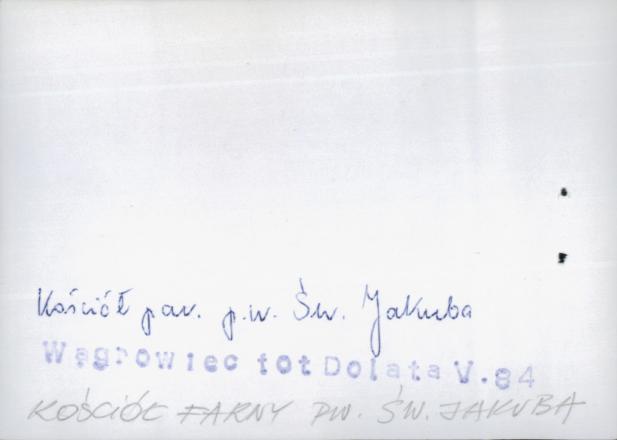 Kościół par. p.w. Św. Jakuba
Wągrowiec fot Dolata V.84
KOŚCIÓŁ FARNY PW. ŚW. JAKUBA